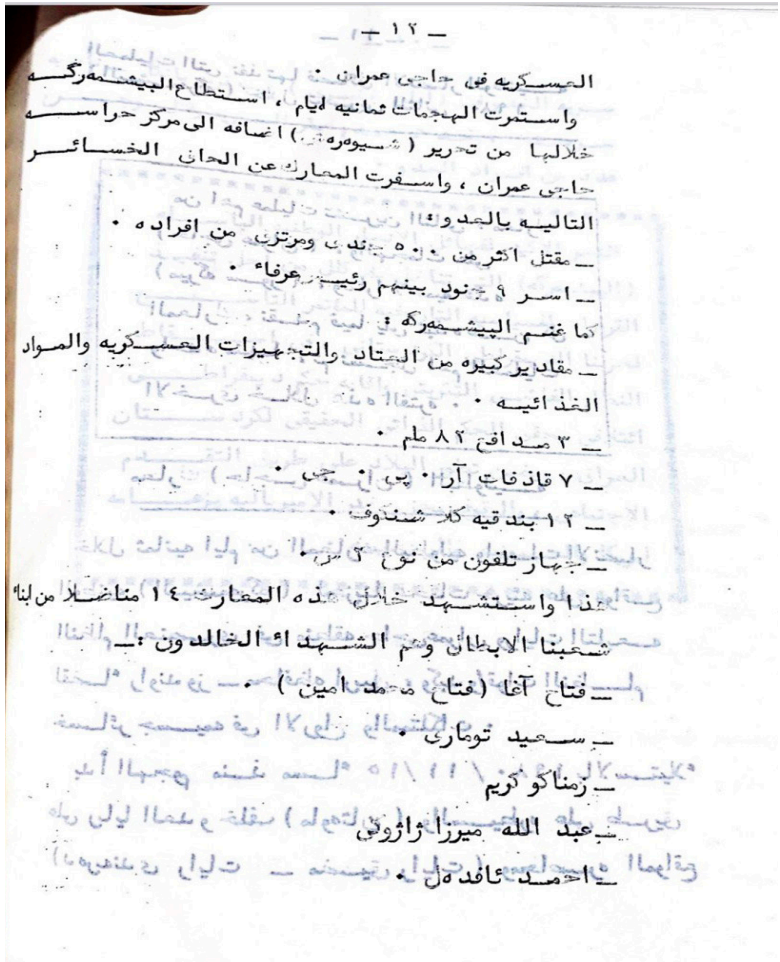 — ١٢ —
العسكريه فى حاجى عمران .
واستمرت الهجمات ثمانيه ايام ، استطاع البيشمه‌رگه
خلالها من تحرير ( شيوه‌ره‌ش ) اضافه الى مركز حراسه
حاجى عمران ، واسفرت المعارك عن الحاق الخسائر
التاليه بالعدو :
— مقتل اكثر من ٥٠٠ جندى ومرتزق من افراده .
— اسر ٩ جنود بينهم رئيس عرفاء .
كما غنم الپيشمه‌رگه :
— مقادير كبيره من العتاد والتجهيزات العسكريه والمواد
الغذائيه .
— ٣ مدافع ٨٢ ملم .
— ٧ قاذفات آر. پى . جى .
— ١٢ بندقيه كلاشنكوف .
— جهاز تلفون من نوع
هذا واستشهد خلال هذه المعارك ١٤ مناضلا من ابناء
شعبنا الابطال وهم الشهداء الخالدون :—
— فتاح آغا (فتاح محمد امين ) .
— سعيد تومارى .
— زمناكو كريم
— عبد الله ميرزا ژاژوكى
— احمد ئافده‌ل .